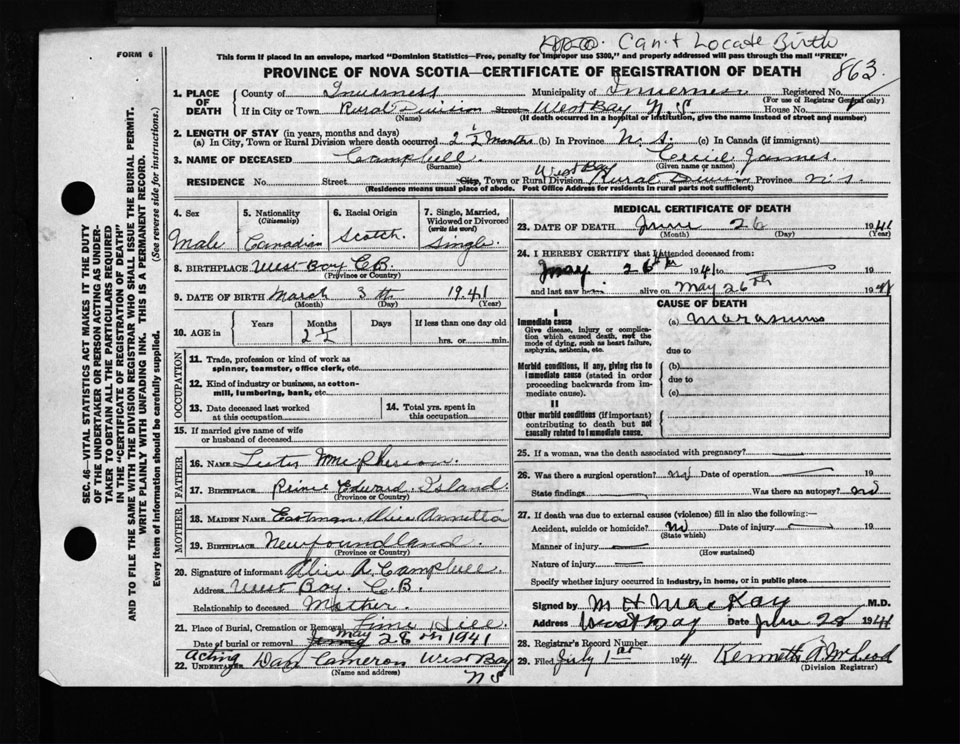 Can't Locate Birth
FORM 6
This form if placed in an envelope, marked "Dominion Statistics—Free, penalty for improper use $300," and properly addressed will pass through the mail "FREE"
PROVINCE OF NOVA SCOTIA—CERTIFICATE OF REGISTRATION OF DEATH
863
1. PLACE OF DEATH County of Inverness Municipality of Inverness Registered No.
(For use of Registrar General only)
If in City or Town Rural Division Street West Bay N S House No.
(Name) (If death occurred in a hospital or institution, give the name instead of street and number)
2. LENGTH OF STAY (in years, months and days)
(a) In City, Town or Rural Division where death occurred 2 1/2 months (b) In Province N.S. (c) In Canada (if immigrant)
3. NAME OF DECEASED Campbell. Cecil James.
(Surname) (Given name or names)
West Bay
RESIDENCE No. Street City, Town or Rural Division Rural Division Province N.S.
(Residence means usual place of abode. Post Office Address for residents in rural parts not sufficient)
4. Sex Male
5. Nationality (Citizenship) Canadian
6. Racial Origin Scotch.
7. Single, Married, Widowed or Divorced (write the word) Single.
8. BIRTHPLACE West Bay C.B.
(Province or Country)
9. DATE OF BIRTH March 3th 1941
(Month) (Day) (Year)
10. AGE in Years Months Days If less than one day old
2 1/2 hrs. or min.
OCCUPATION
11. Trade, profession or kind of work as spinner, teamster, office clerk, etc.
12. Kind of industry or business, as cotton-mill, lumbering, bank, etc.
13. Date deceased last worked at this occupation
14. Total yrs. spent in this occupation
15. If married give name of wife or husband of deceased
FATHER
16. Name Lester McPherson
17. Birthplace Prince Edward Island.
(Province or Country)
MOTHER
18. Maiden Name Eastman, Alice Annetta
19. Birthplace Newfoundland.
(Province or Country)
20. Signature of informant Alice A. Campbell.
Address West Bay. C.B.
Relationship to deceased Mother.
21. Place of Burial, Cremation or Removal Lime Hill.
Date of burial or removal May 28th 1941
Acting
22. UNDERTAKER Dan Cameron West Bay
(Name and address) N S
MEDICAL CERTIFICATE OF DEATH
23. DATE OF DEATH June 26 1941
(Month) (Day) (Year)
24. I HEREBY CERTIFY that I attended deceased from:
May 26th 1941 to 19
and last saw h alive on May 26th 1941
CAUSE OF DEATH
I
Immediate cause
Give disease, injury or complication which caused death, not the mode of dying, such as heart failure, asphyxia, asthenia, etc.
(a) Marasmus
due to
Morbid conditions, if any, giving rise to immediate cause (stated in order proceeding backwards from immediate cause).
(b)
due to
(c)
II
Other morbid conditions (if important) contributing to death but not causally related to immediate cause.
25. If a woman, was the death associated with pregnancy?
26. Was there a surgical operation? no Date of operation 19
State findings Was there an autopsy? no
27. If death was due to external causes (violence) fill in also the following:—
Accident, suicide or homicide? no Date of injury 19
(State which)
Manner of injury
(How sustained)
Nature of injury
Specify whether injury occurred in industry, in home, or in public place
Signed by M H MacKay M.D.
Address West Bay Date June 28 1941
28. Registrar's Record Number
29. Filed July 1st 1941 Kenneth A. McLeod
(Division Registrar)
SEC. 46—VITAL STATISTICS ACT MAKES IT THE DUTY
OF THE UNDERTAKER OR PERSON ACTING AS UNDER-
TAKER TO OBTAIN ALL THE PARTICULARS REQUIRED
IN THE "CERTIFICATE OF REGISTRATION OF DEATH"
AND TO FILE THE SAME WITH THE DIVISION REGISTRAR WHO SHALL ISSUE THE BURIAL PERMIT.
WRITE PLAINLY WITH UNFADING INK. THIS IS A PERMANENT RECORD.
Every item of information should be carefully supplied. (See reverse side for instructions.)